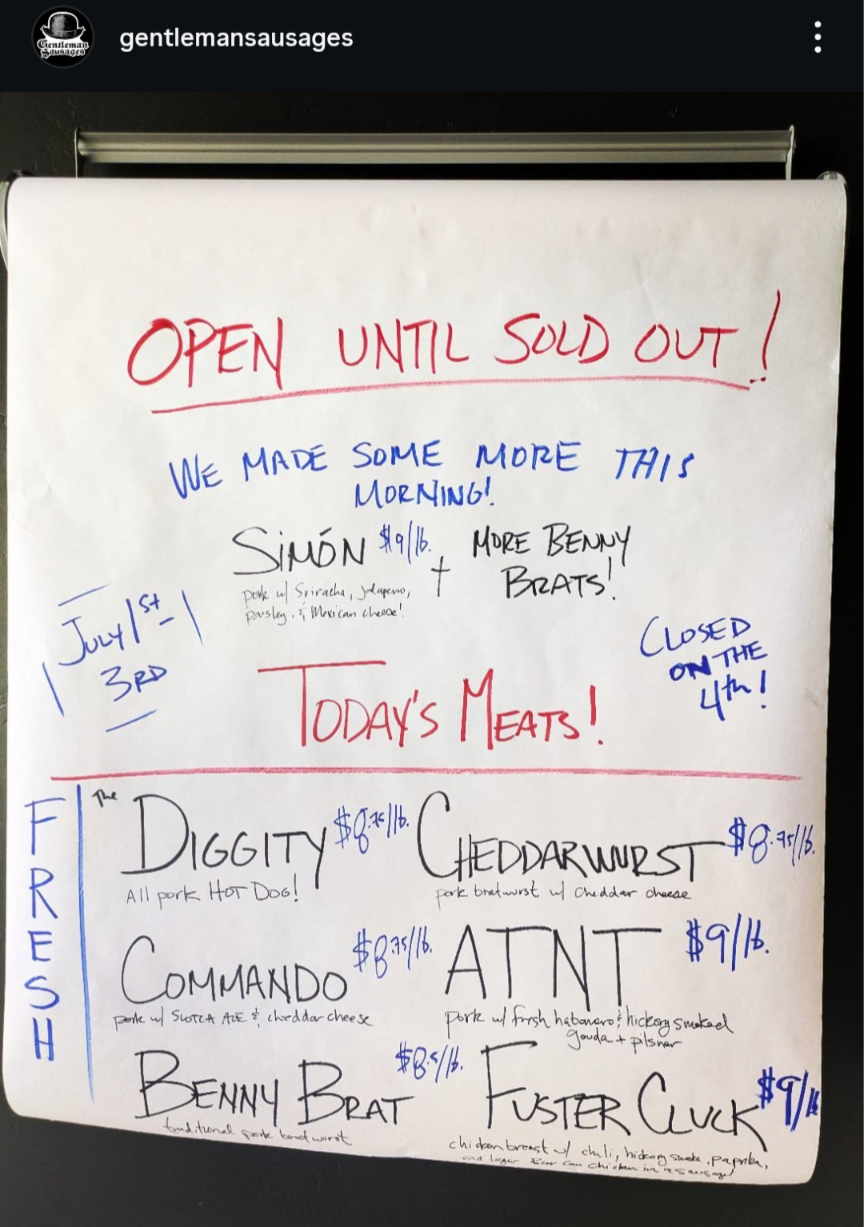 gentlemansausages
Gentleman
Sausages
OPEN UNTIL SOLD OUT!
WE MADE SOME MORE THIS
MORNING!
SIMÓN $9/lb. + MORE BENNY
BRATS!
pork w/ Sriracha, jalapeno,
parsley, & Mexican cheese!
JULY 1st-
3RD
CLOSED
ON THE
4th!
TODAY'S MEATS!
FRESH
The DIGGITY $8.75/lb.
All pork HOT DOG!
CHEDDARWURST $8.75/lb.
pork bratwurst w/ cheddar cheese
COMMANDO $8.75/lb.
pork w/ SCOTCH ALE & cheddar cheese
ATNT $9/lb.
pork w/ fresh habanero & hickory smoked
gouda + pilsner
BENNY BRAT $8.5/lb.
traditional pork bratwurst
FUSTER CLUCK $9/lb
chicken breast w/ chili, hickory smoke, paprika,
and lager Beer can chicken in a sausage!